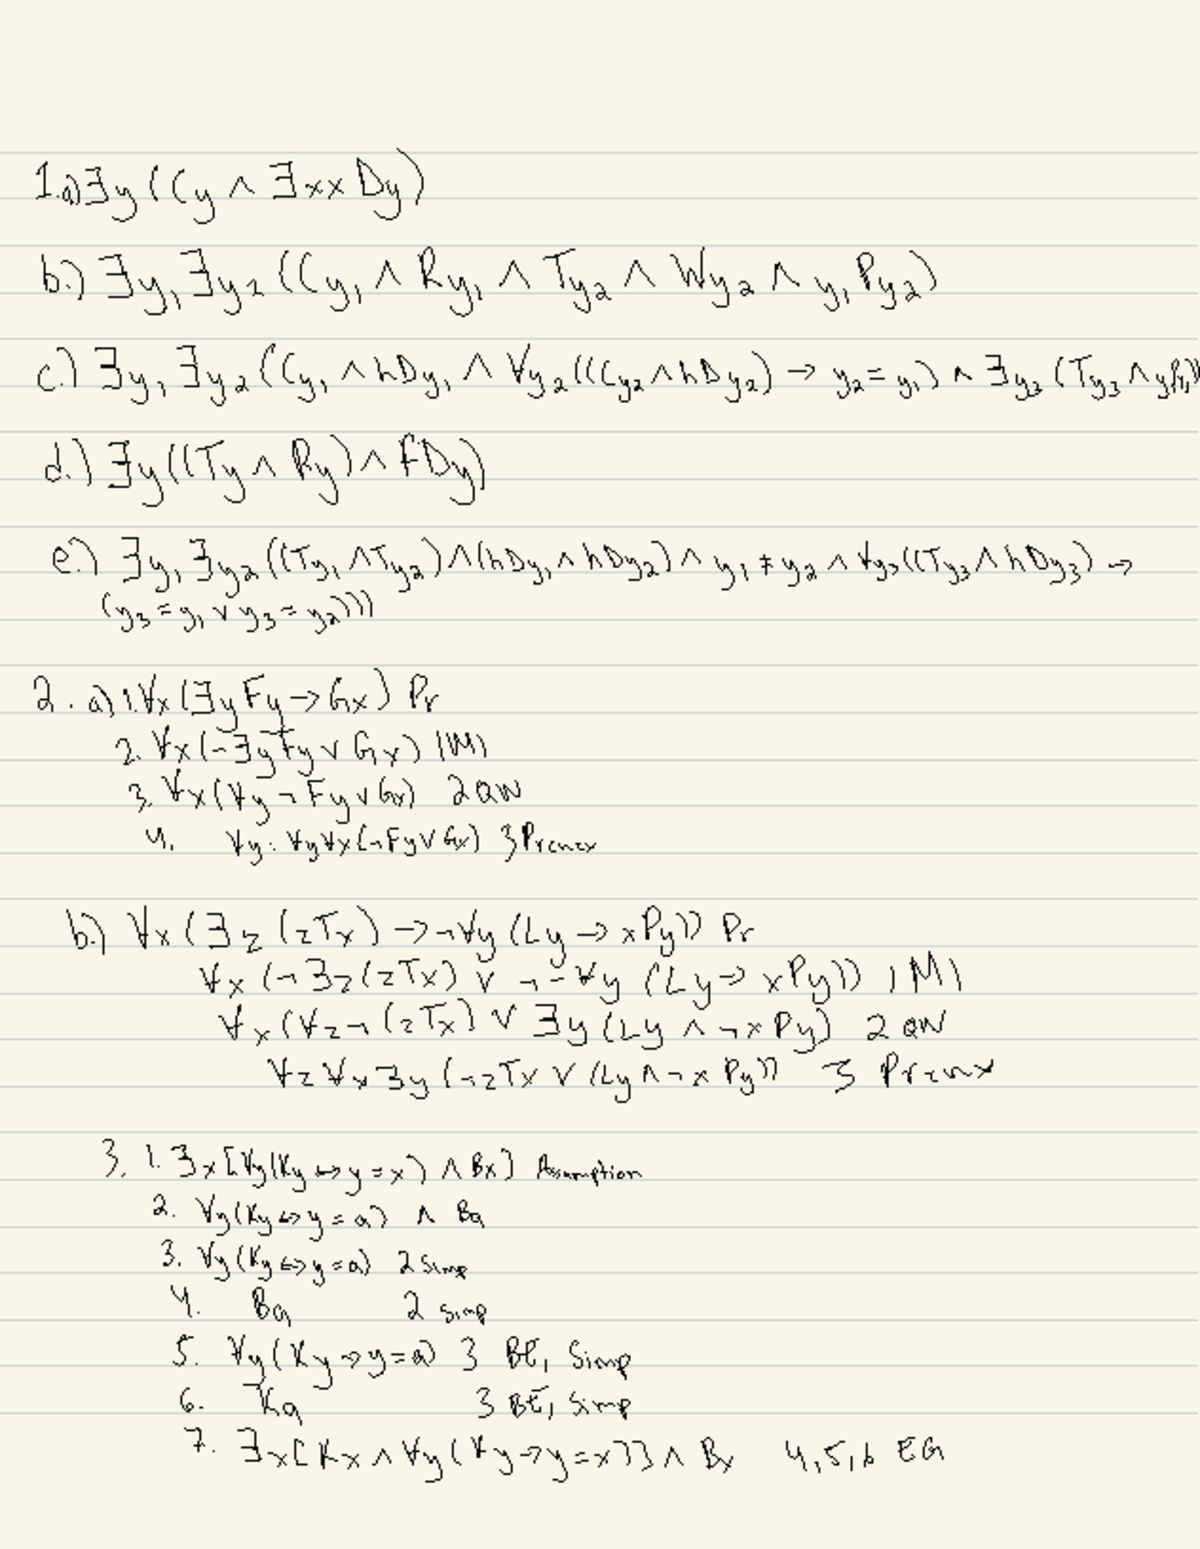 1.a) ∃y (Cy ∧ ∃x x Dy)
b.) ∃y₁ ∃y₂ (Cy₁ ∧ Ry₁ ∧ Ty₂ ∧ Wy₂ ∧ y₁Py₂)
c.) ∃y₁ ∃y₂ (Cy₁ ∧ hDy₁ ∧ ∀y₂ (((Cy₂ ∧ hDy₂) → y₂ = y₁) ∧ ∃y₃ (Ty₃ ∧ y₁Py₃))
d.) ∃y ((Ty ∧ Ry) ∧ fDy)
e.) ∃y₁ ∃y₂ ((Ty₁ ∧ Ty₂) ∧ (hDy₁ ∧ hDy₂) ∧ y₁ ≠ y₂ ∧ ∀y₃ ((Ty₃ ∧ hDy₃) →
(y₃ = y₁ ∨ y₃ = y₂))))
2. a) 1. ∀x (∃y Fy → Gx) Pr
2. ∀x (¬∃y Fy ∨ Gx) 1 MI
3. ∀x (∀y ¬Fy ∨ Gx) 2 QN
4. ∀y: ∀y∀x (¬Fy ∨ Gx) 3 Prenex
b.) ∀x (∃z (zTx) → ¬∀y (Ly → xPy)) Pr
∀x (¬∃z (zTx) ∨ ¬¬∀y (Ly → xPy)) 1 MI
∀x (∀z ¬(zTx) ∨ ∃y (Ly ∧ ¬xPy) 2 QN
∀z ∀x ∃y (¬zTx ∨ (Ly ∧ ¬xPy)) 3 Prenex
3. 1. ∃x [∀y (Ky ↔ y = x) ∧ Bx] Assumption
2. ∀y (Ky ↔ y = a) ∧ Ba
3. ∀y (Ky ↔ y = a) 2 Simp
4. Ba 2 Simp
5. ∀y (Ky → y = a) 3 BE, Simp
6. Ka 3 BE, Simp
7. ∃x [Kx ∧ ∀y (Ky → y = x)] ∧ Bx 4,5,6 EG